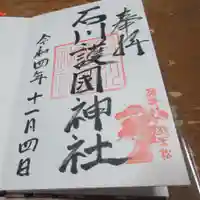 奉拝
石川護國神社
令和四年十一月四日